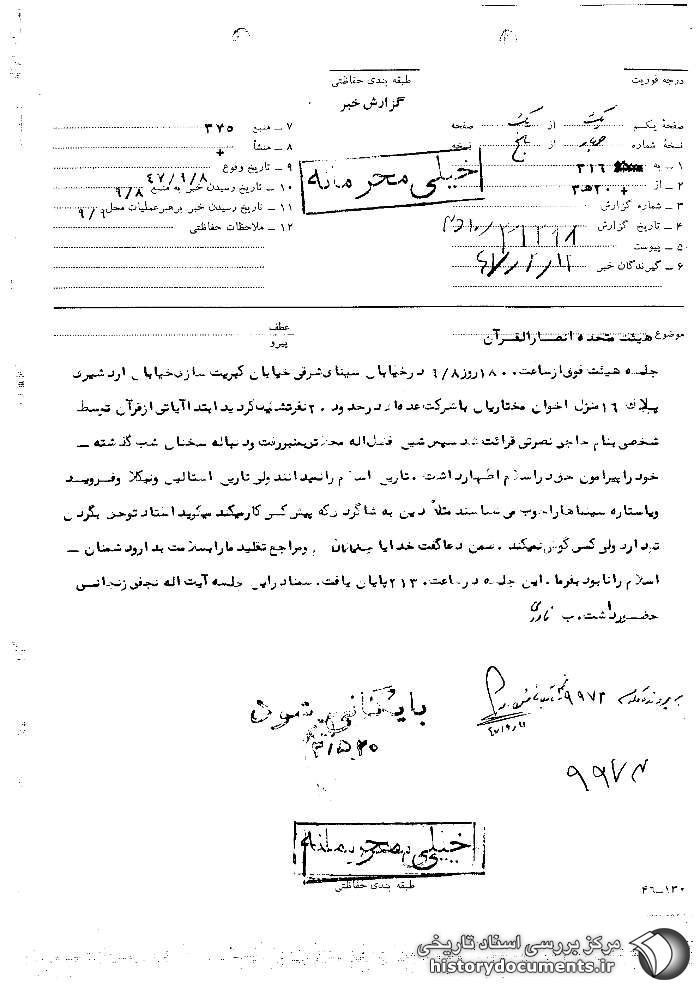 درجه فوریت
طبقه بندی حفاظتی
گزارش خبر
صفحهٔ یکم یک از یک صفحه
نسخهٔ شماره چهار از پنج نسخه
۱ ـ به ۳۱۶
۲ ـ از ۲۰ ه‍ ۳
۳ ـ شماره گزارش
۴ ـ تاریخ گزارش
۵ ـ پیوست
۶ ـ گیرندگان خبر
۷ ـ منبع ۳۷۵
۸ ـ منشأ
۹ ـ تاریخ وقوع ۴۷/۹/۸
۱۰ ـ تاریخ رسیدن خبر به منبع ۹/۸
۱۱ ـ تاریخ رسیدن خبر برهبرعملیات محل ۹/۹
۱۲ ـ ملاحظات حفاظتی
خیلی محرمانه
موضوع هیئت متحده انصارالقرآن
عطف
پیرو
جلسه هیئت فوق از ساعت ۱۸۰۰ روز ۹/۸ در خیابان سینای شرقی خیابان کبریت سازی خیابان اردشیری
پلاک ۱۶ منزل اخوان مختاریان با شرکت عده‌ای در حدود ۲۰ نفر تشکیل گردید ابتدا آیاتی از قرآن توسط
شخصی بنام حاجی نصرتی قرائت شد سپس شیخ فضل‌اله محلاتی بمنبر رفت و دنباله سخنان شب گذشته ـ
خود را پیرامون حق در اسلام اظهار داشت. تاریخ اسلام را نمیدانند ولی تاریخ استالین و نیکلا و فروید
و یا ستاره سینماها را خوب می شناسند مثلاً دین به شاگردی که پیش کسی کار میکند میگوید استاد تو حق بگردن
تو دارد ولی کسی گوش نمیکند. ضمن دعا گفت خدایا و مراجع تقلید ما را بسلامت بدار و دشمنان ـ
اسلام را نابود بفرما. این جلسه در ساعت ۲۱۳۰ پایان یافت. ضمناً در این جلسه آیت اله نجفی زنجانی
حضور داشت. ب
بایگانی شود
۳/۵۲۰
۹۹۷۲
۴۷/۹/۱۱
۹۹۷۲
خیلی محرمانه
طبقه بندی حفاظتی
۴۶ـ۱۳۰
مرکز بررسی اسناد تاریخی
historydocuments.ir